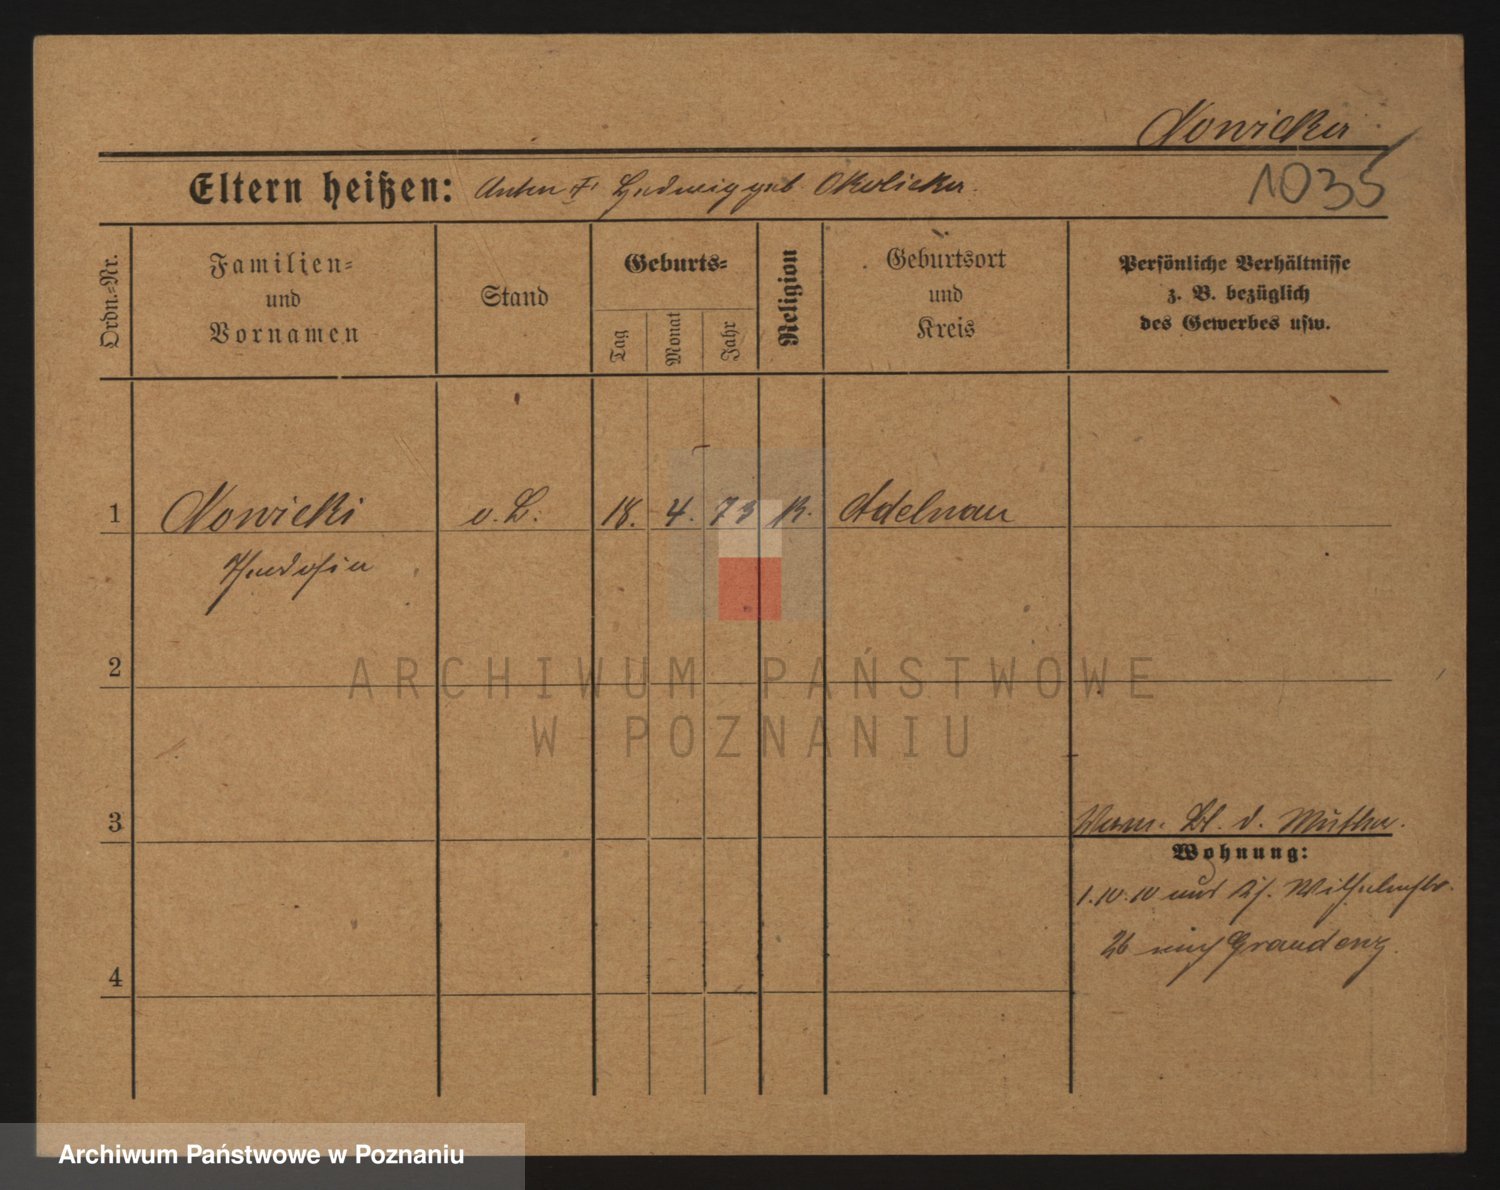 Nowicka
Eltern heißen: Anton u. Hedwig geb. Okolicka.
1035
Ordn.-Nr.
Familien-
und
Vornamen
Stand
Geburts-
Tag
Monat
Jahr
Religion
Geburtsort
und
Kreis
Persönliche Verhältnisse
z. B. bezüglich
des Gewerbes usw.
1 Nowicki v. L. 18. 4. 73 k. Adelnau
2
ARCHIWUM PAŃSTWOWE
W POZNANIU
3
d. Mutter.
Wohnung:
1.10.10 Wilhelmstr.
26 Graudenz.
4
Archiwum Państwowe w Poznaniu